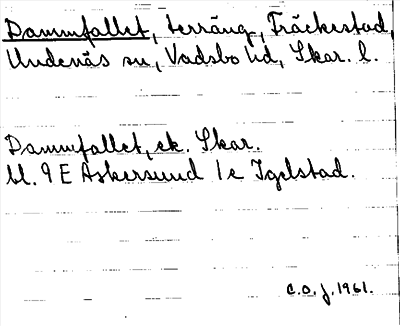 Dammfallet, terräng, Träckestad,
Undenäs sn, Vadsbo hd, Skar. l.
Dammfallet, ek. Skar.
bl. 9 E Askersund 1 e Igelstad.
C.O.J. 1961.